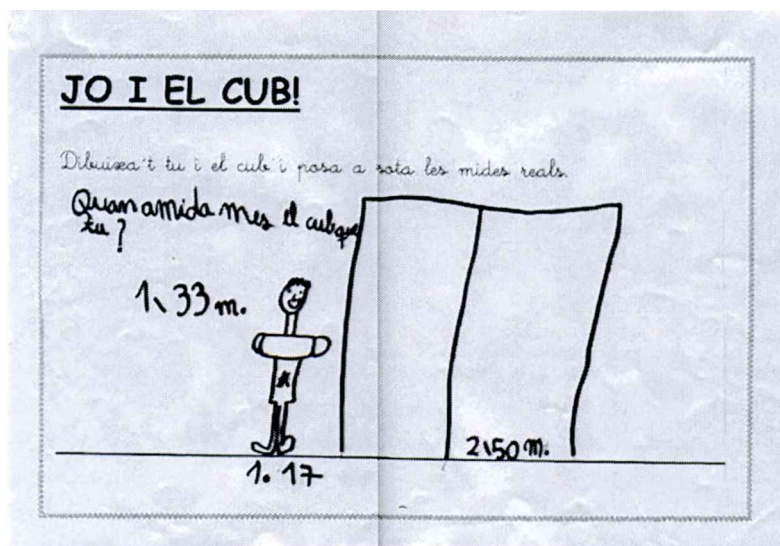 JO I EL CUB!
Dibuixa't tu i el cub i posa a sota les mides reals.
Quan amida mes el cub que
tu?
1,33 m.
2,50 m.
1.17